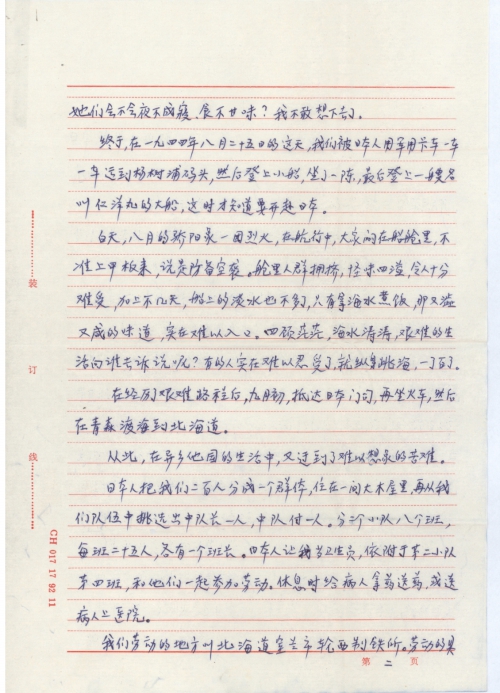 她们会不会夜不成寝、食不甘味？我不敢想下去了。
终于，在一九四四年八月二十五日的这天，我们被日本人用军用卡车一车
一车运到杨树浦码头，然后登上小船，坐了一阵，最后登上一艘名
叫仁洋丸的大船，这时才知道要开赴日本。
白天，八月的骄阳象一团烈火，在航行中，大家闷在船舱里，不
准上甲板来，说是防备空袭。舱里人群拥挤，怪味四溢，令人十分
难受，加上不几天，船上的淡水也不多，只有拿海水煮饭，那又涩
又咸的味道，实在难以入口。四顾茫茫，海水清涛，艰难的生
活向谁去诉说呢？有的人实在难以忍受了，就纵身跳海，一了百了。
在经历艰难路程后，九月初，抵达日本门司，再坐火车，然后
在青森渡海到北海道。
从此，在异乡他国的生活中，又遇到了难以想象的苦难。
日本人把我们二百人分成一个群体，住在一间大木屋里，再从我
们队伍中挑选出中队长一人，中队付一人。分三个小队八个班，
每班二十五人，各有一个班长。日本人让我当卫生员，依附于第二小队
第四班，和他们一起参加劳动。休息时给病人拿药送药，或送
病人上医院。
我们劳动的地方叫北海道室兰市轮西制铁所。劳动的具
装
订
线
CH 017 17 92 11
第 二 页